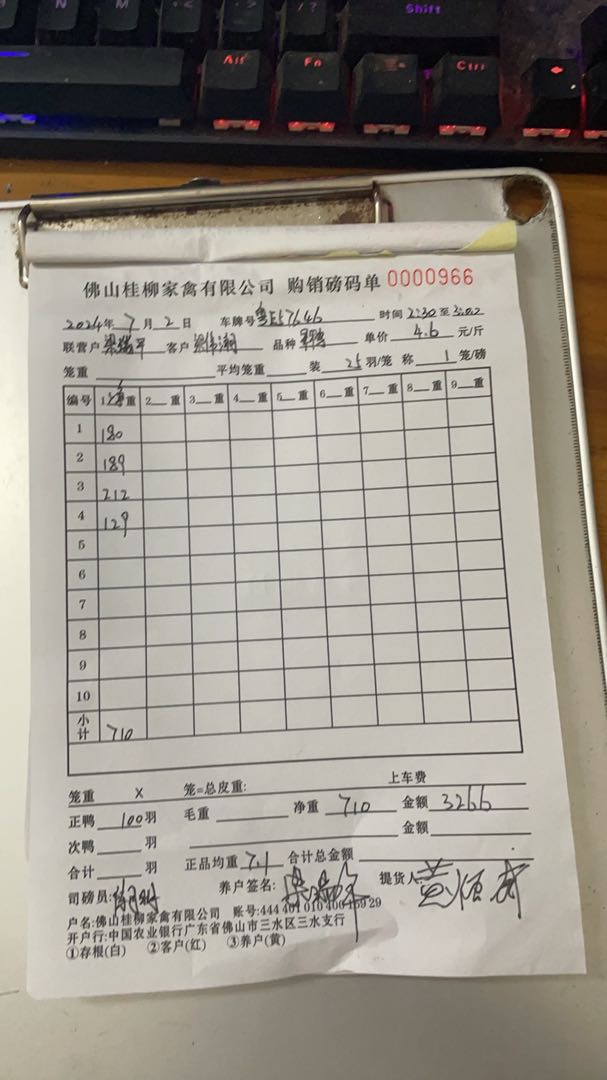 N M < > / ? Shift
Alt Fn Ctrl
佛山桂柳家禽有限公司 购销磅码单 0000966
2024年 7 月 2 日 车牌号 粤E57646 时间 2:30 至 3:02
联营户 客户 品种 单价 4.6 元/斤
笼重 平均笼重 装 25 羽/笼 称 1 笼/磅
编号 1 净重 2 重 3 重 4 重 5 重 6 重 7 重 8 重 9 重
1 180
2 189
3 212
4 129
5
6
7
8
9
10
小计 710
笼重 X 笼=总皮重: 上车费
正鸭 100 羽 毛重 净重 710 金额 3266
次鸭 羽 金额
合计 羽 正品均重 7.1 合计总金额
司磅员: 养户签名: 提货人 黄恒武
户名:佛山桂柳家禽有限公司 账号:444 401 010 400 15929
开户行:中国农业银行广东省佛山市三水区三水支行
①存根(白) ②客户(红) ③养户(黄)